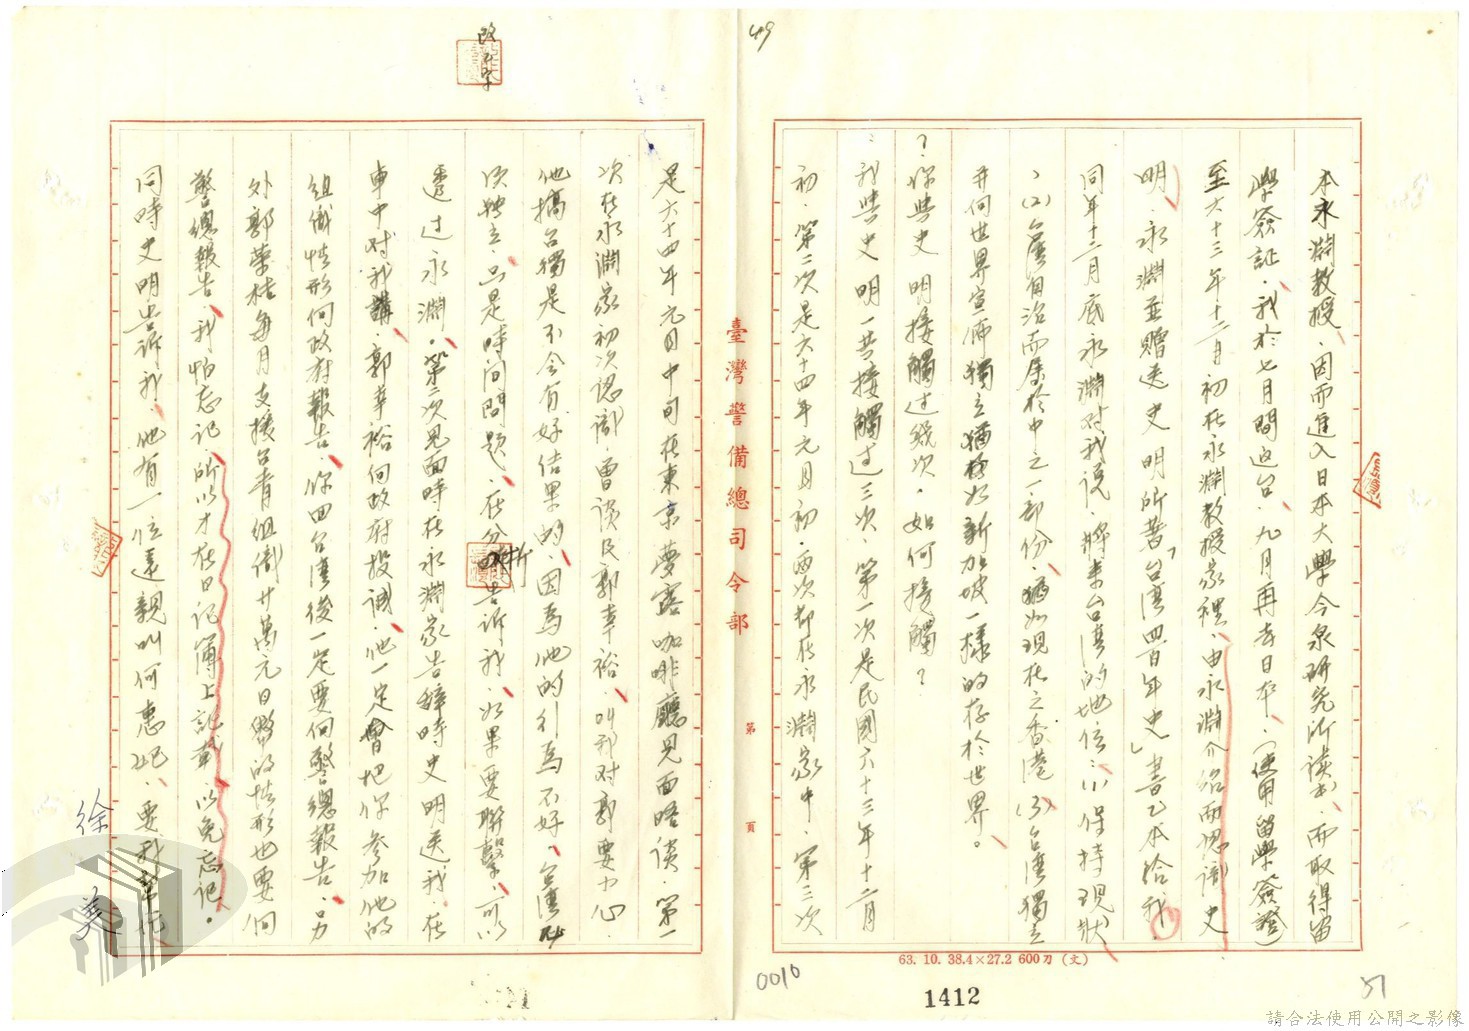 本永淵教授、因而進入日本大學今泉研究所讀書、而取得留
學簽証、我於七月間返台、九月再去日本、(使用留學簽證)
至六十三年十二月初在永淵教授家裡、由永淵介紹而認識史
明、永淵並贈送史明所著「台灣四百年史」書乙本給我、
同年十二月底永淵对我說、將來台湾的地位:(1)保持現狀
、(2)台灣自治而屬於中之一部份、猶如現在之香港(3)台灣獨立
并向世界宣佈獨立猶如新加坡一樣的存於世界。
?你與史明接觸过幾次、如何接觸?
:我與史明一共接觸过三次、第一次是民國六十三年十二月
初、第二次是六十四年元月初、兩次都在永淵家中、第三次
臺灣警備總司令部
第 頁
是六十四年元月中旬在東京夢露咖啡廳見面晤談、第一
次在永淵家初次認識、曾談及郭幸裕、叫我对郭要小心、
他搞台獨是不会有好結果的、因為他的引為不好、台湾
次獨立、只是時间問題、在分析告訴我、如果要聯擊、可以
透过永淵、第三次見面時在永淵家告辞時史明送我、在
車中对我講、郭幸裕向政府投誠、他一定會把你参加他的
組織情形向政府報告、你回台湾後一定要向警總報告、另
外郭榮桔每月支援台青組織廿萬元日幣的情形也要向
警總報告、我怕忘記、所以才在日记簿上記載、以免忘记。
同時史明告訴我、他有一位遠親叫何惠
徐 美
改 字
49
0010
1412
51
63. 10. 38.4×27.2 600刀 (文)
請合法使用公開之影像